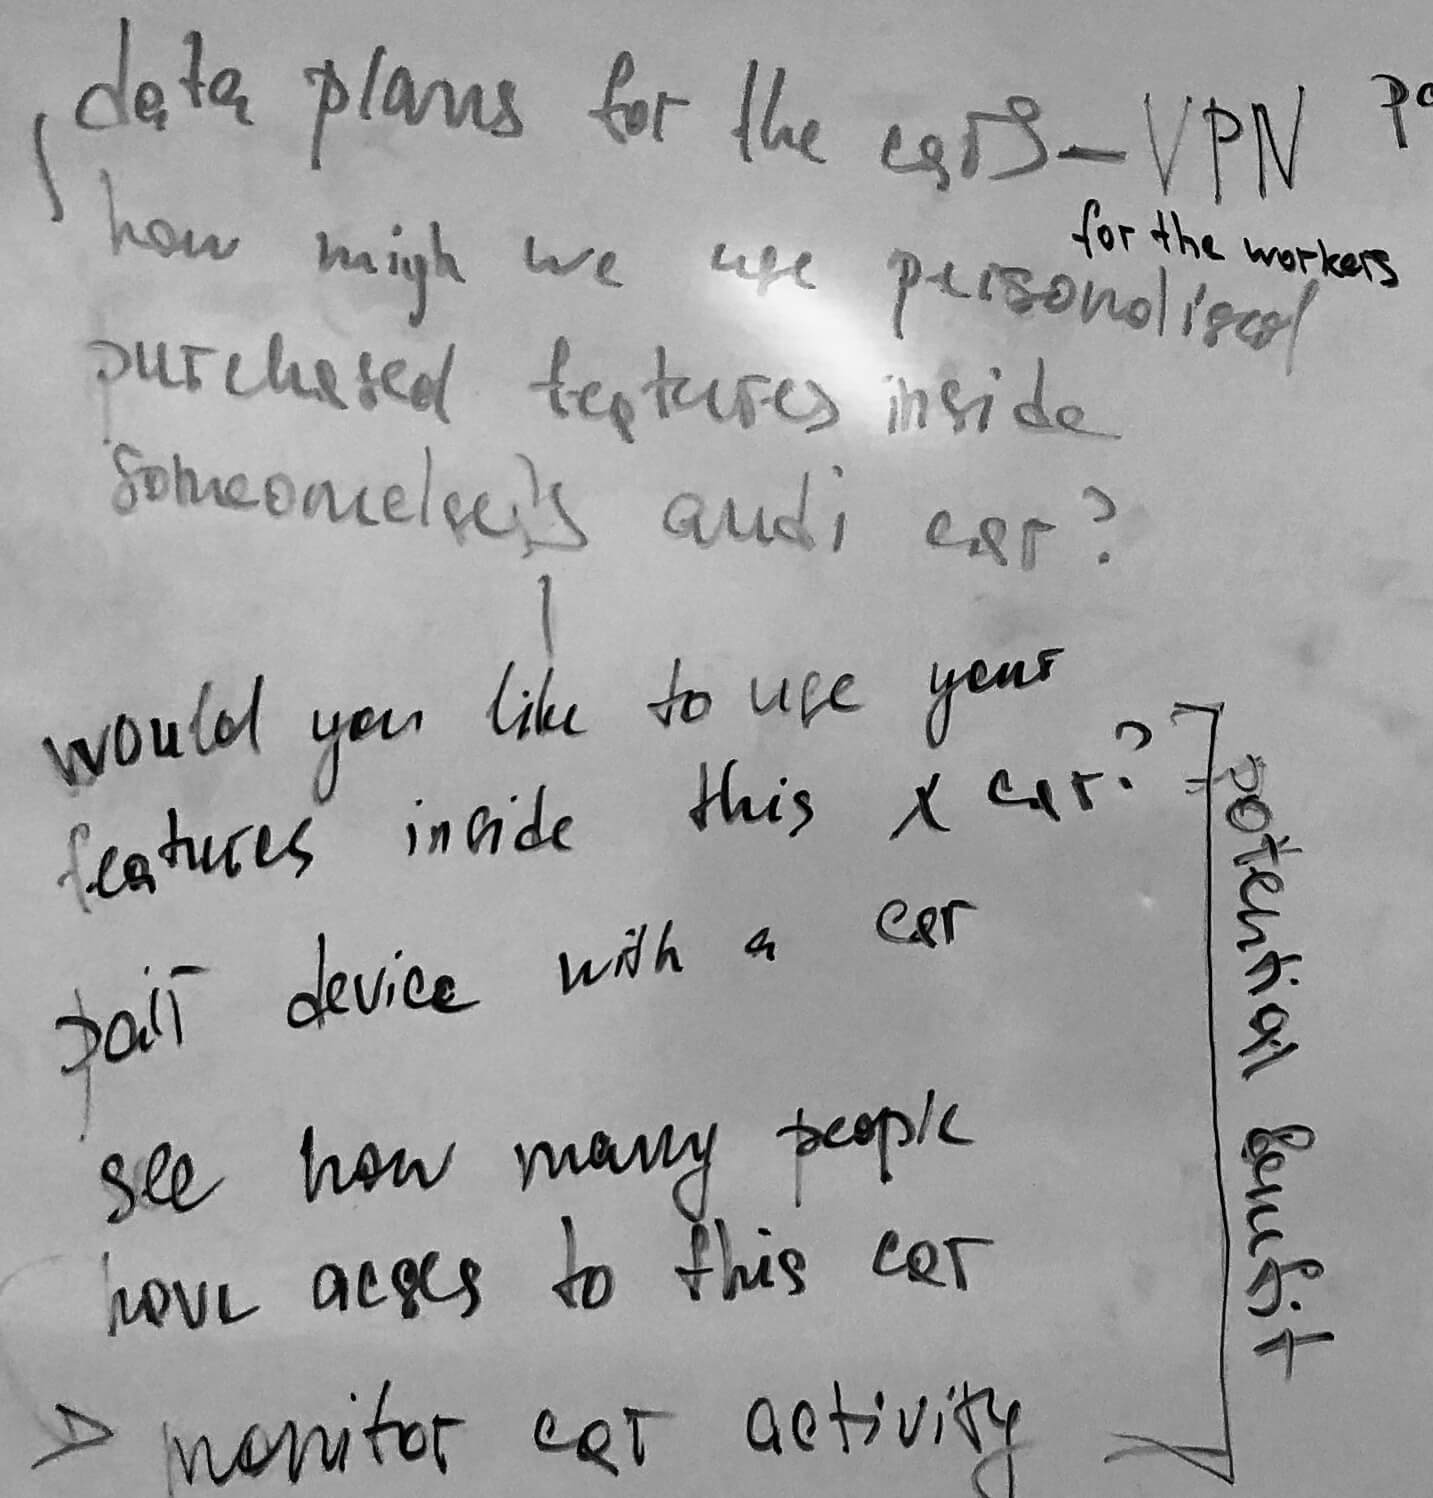 data plans for the cars – VPN
for the workers
how migh we use personalised
purchased features inside
someoneelse's audi car?
would you like to use your
features inside this x car?
pair device with a car
see how many people
have acses to this car
> monitor car activity
potential benefit